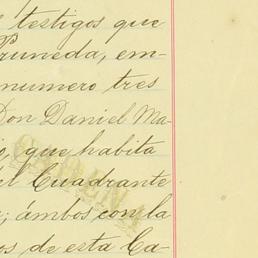 testigos que
Pruneda, em-
numero tres
Don Daniel Ma-
o, que habita
del Cuadrante
; ámbos con la
os de esta Ca-